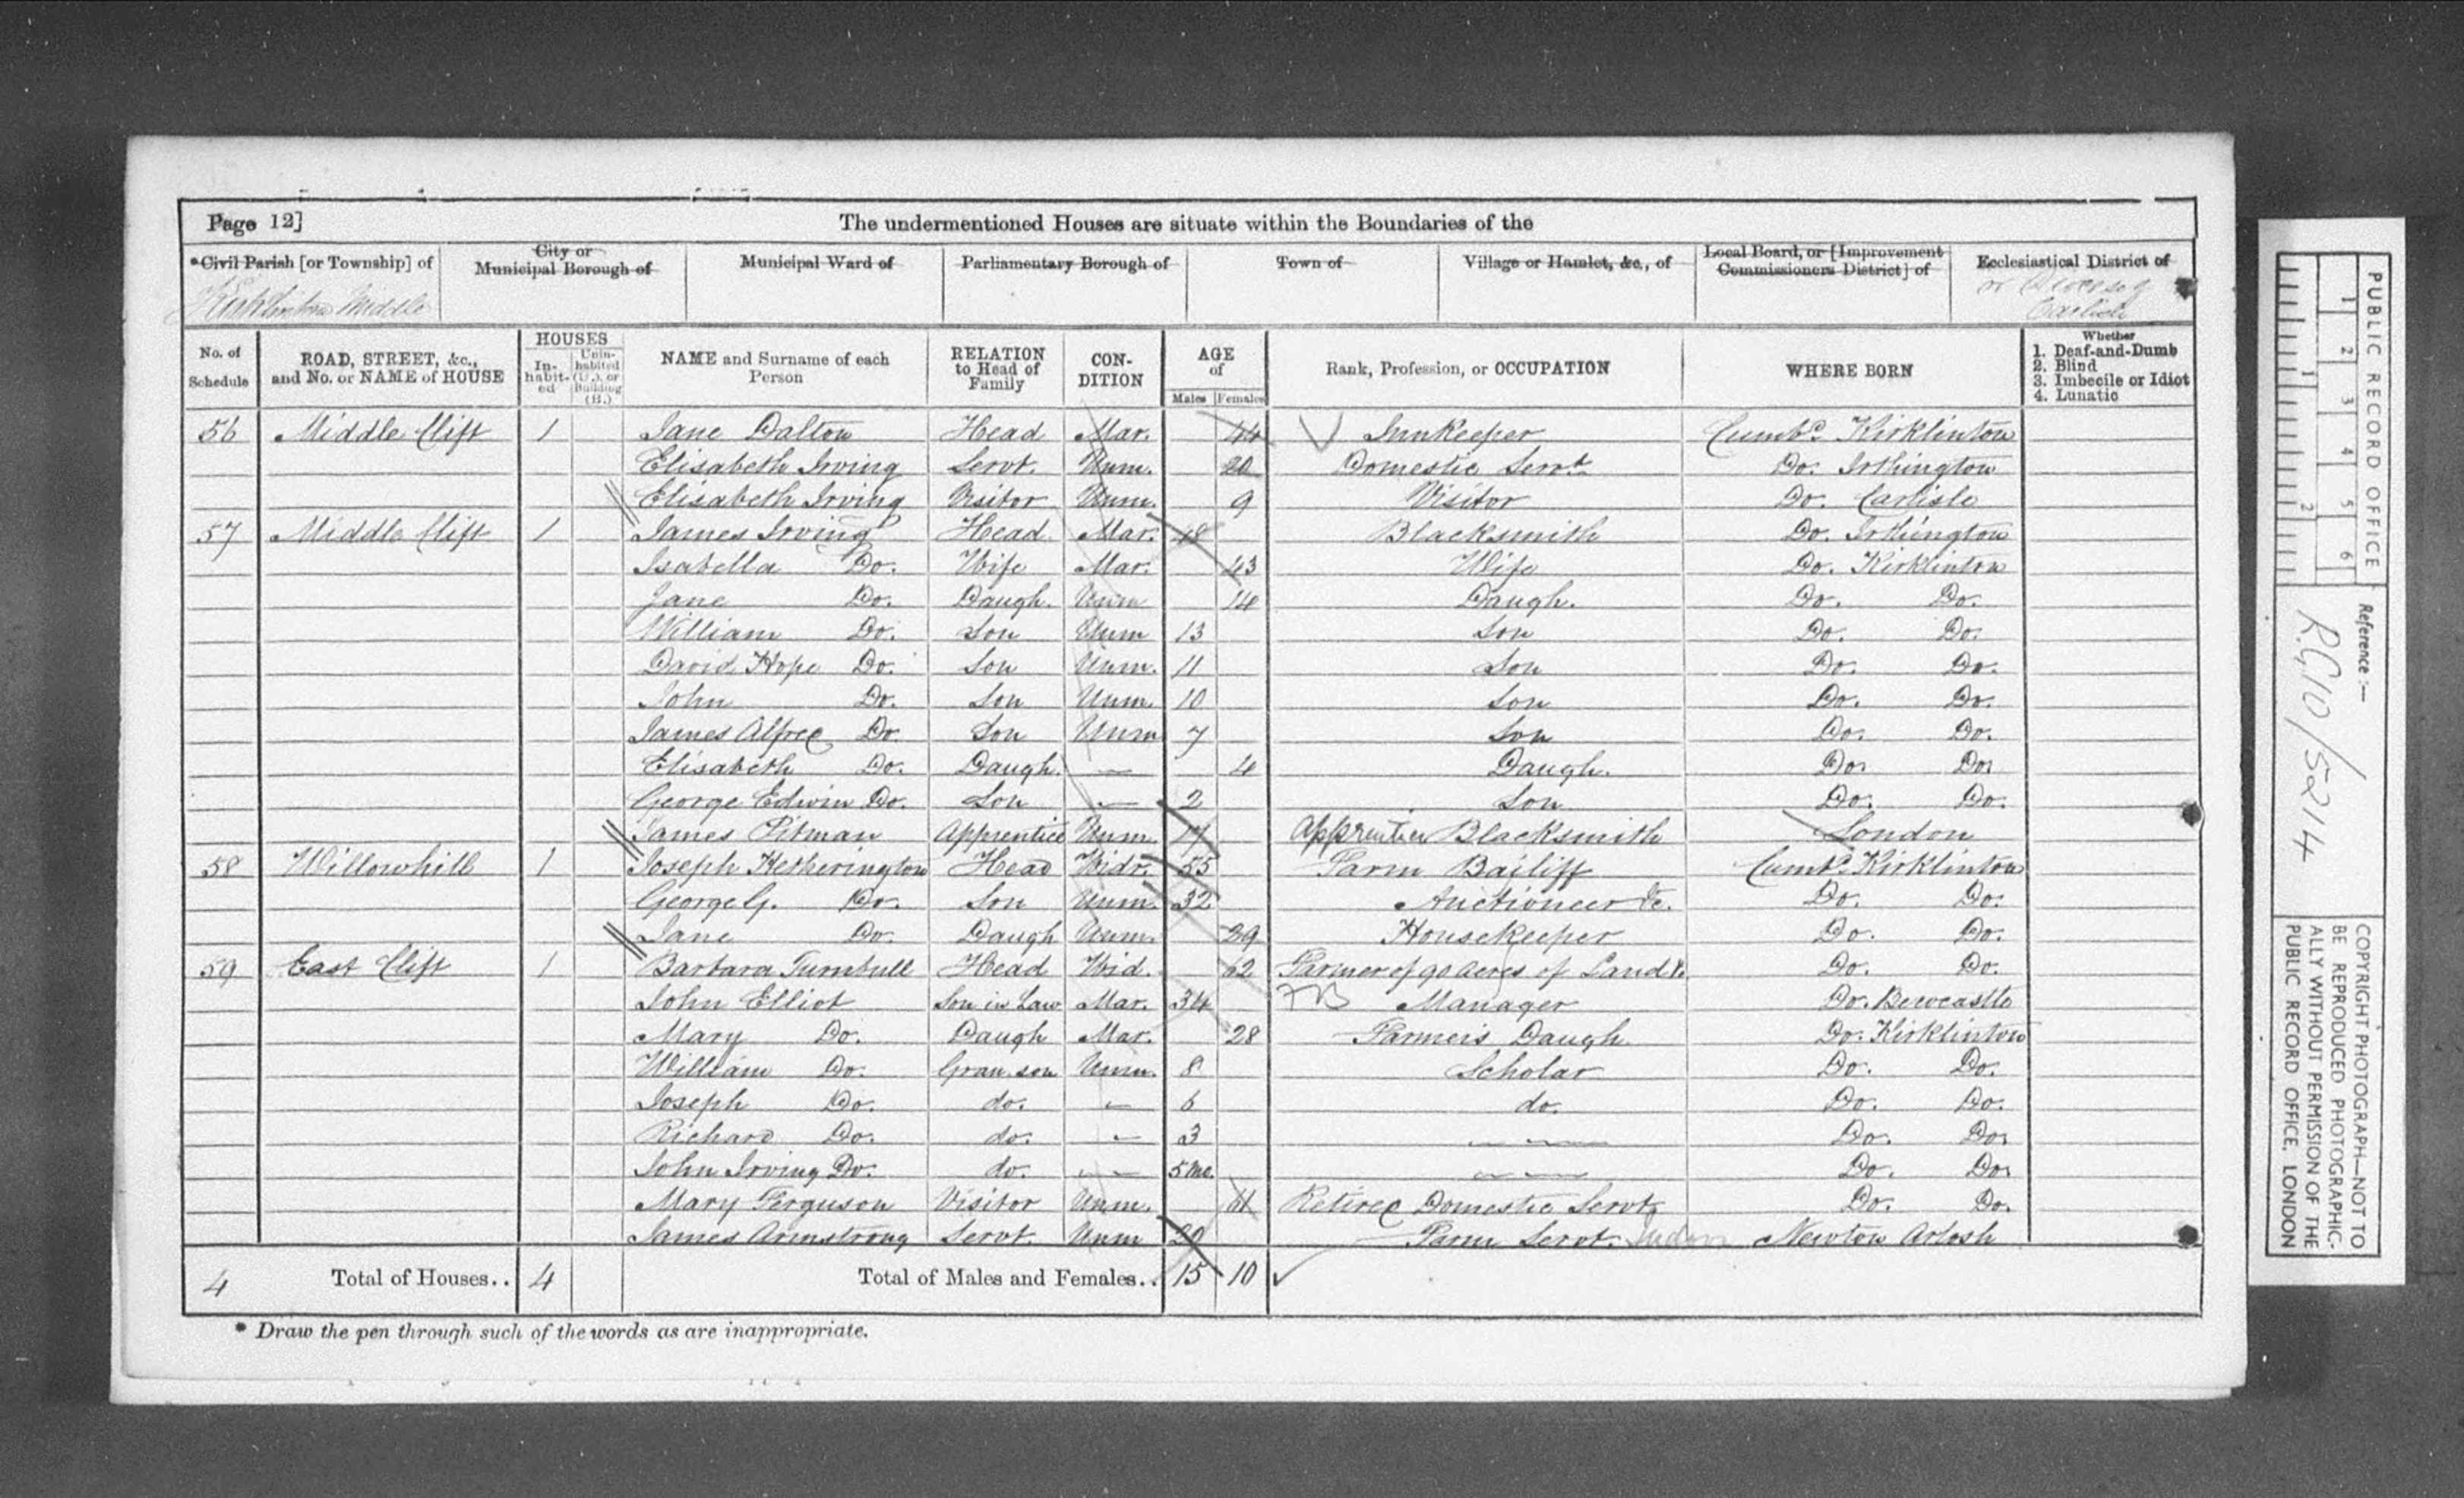 Page 12]
The undermentioned Houses are situate within the Boundaries of the
*Civil Parish [or Township] of
City or Municipal Borough of
Municipal Ward of
Parliamentary Borough of
Town of
Village or Hamlet, &c., of
Local Board, or [Improvement Commissioners District] of
Ecclesiastical District of
Kirklinton Middle
Carlisle
No. of Schedule
ROAD, STREET, &c., and No. or NAME of HOUSE
HOUSES
In-habit-ed
Unin-habited (U.), or Building (B.)
NAME and Surname of each Person
RELATION to Head of Family
CON-DITION
AGE of
Males
Females
Rank, Profession, or OCCUPATION
WHERE BORN
Whether
1. Deaf-and-Dumb
2. Blind
3. Imbecile or Idiot
4. Lunatic
56 Middle Clift 1 Jane Dalton Head Mar. 44 Innkeeper Cumbd. Kirklinton
Elisabeth Irving Servt. Unm. 20 Domestic Servt. Do. Irthington
Elisabeth Irving Visitor Unm. 9 Visitor Do. Carlisle
57 Middle Clift 1 James Irving Head Mar. 48 Blacksmith Do. Irthington
Isabella Do. Wife Mar. 43 Wife Do. Kirklinton
Jane Do. Daugh. Unm 14 Daugh. Do. Do.
William Do. Son Unm 13 Son Do. Do.
David Hope Do. Son Unm. 11 Son Do. Do.
John Do. Son Unm. 10 Son Do. Do.
James Alfred Do. Son Unm 7 Son Do. Do.
Elisabeth Do. Daugh. — 4 Daugh. Do. Do.
George Edwin Do. Son — 2 Son Do. Do.
James Pitman Apprentice Unm. 17 Apprentice Blacksmith London
58 Willowhill 1 Joseph Hetherington Head Widr. 55 Farm Bailiff Cumbd. Kirklinton
George G. Do. Son Unm. 32 Auctioneer &c. Do. Do.
Jane Do. Daugh Unm. 29 Housekeeper Do. Do.
59 East Clift 1 Barbara Turnbull Head Wid. 62 Farmer of 90 Acres of Land &. Do. Do.
John Elliot Son in Law Mar. 34 Manager Do. Bewcastle
Mary Do. Daugh Mar. 28 Farmers Daugh. Do. Kirklinton
William Do. Gran. son Unm. 8 Scholar Do. Do.
Joseph Do. do. — 6 do. Do. Do.
Richard Do. do. — 3 Do. Do.
John Irving Do. do. — 5 mo. Do. Do.
Mary Ferguson Visitor Unm. 61 Retired Domestic Servt. Do. Do.
James Armstrong Servt. Unm 20 Farm Servt. Newton Arlosh
4 Total of Houses.. 4 Total of Males and Females.. 15 10
* Draw the pen through such of the words as are inappropriate.
PUBLIC RECORD OFFICE
1 2 3 4 5 6
1 2
Reference :—
R.G.10/5214
COPYRIGHT PHOTOGRAPH—NOT TO
BE REPRODUCED PHOTOGRAPHIC-
ALLY WITHOUT PERMISSION OF THE
PUBLIC RECORD OFFICE, LONDON